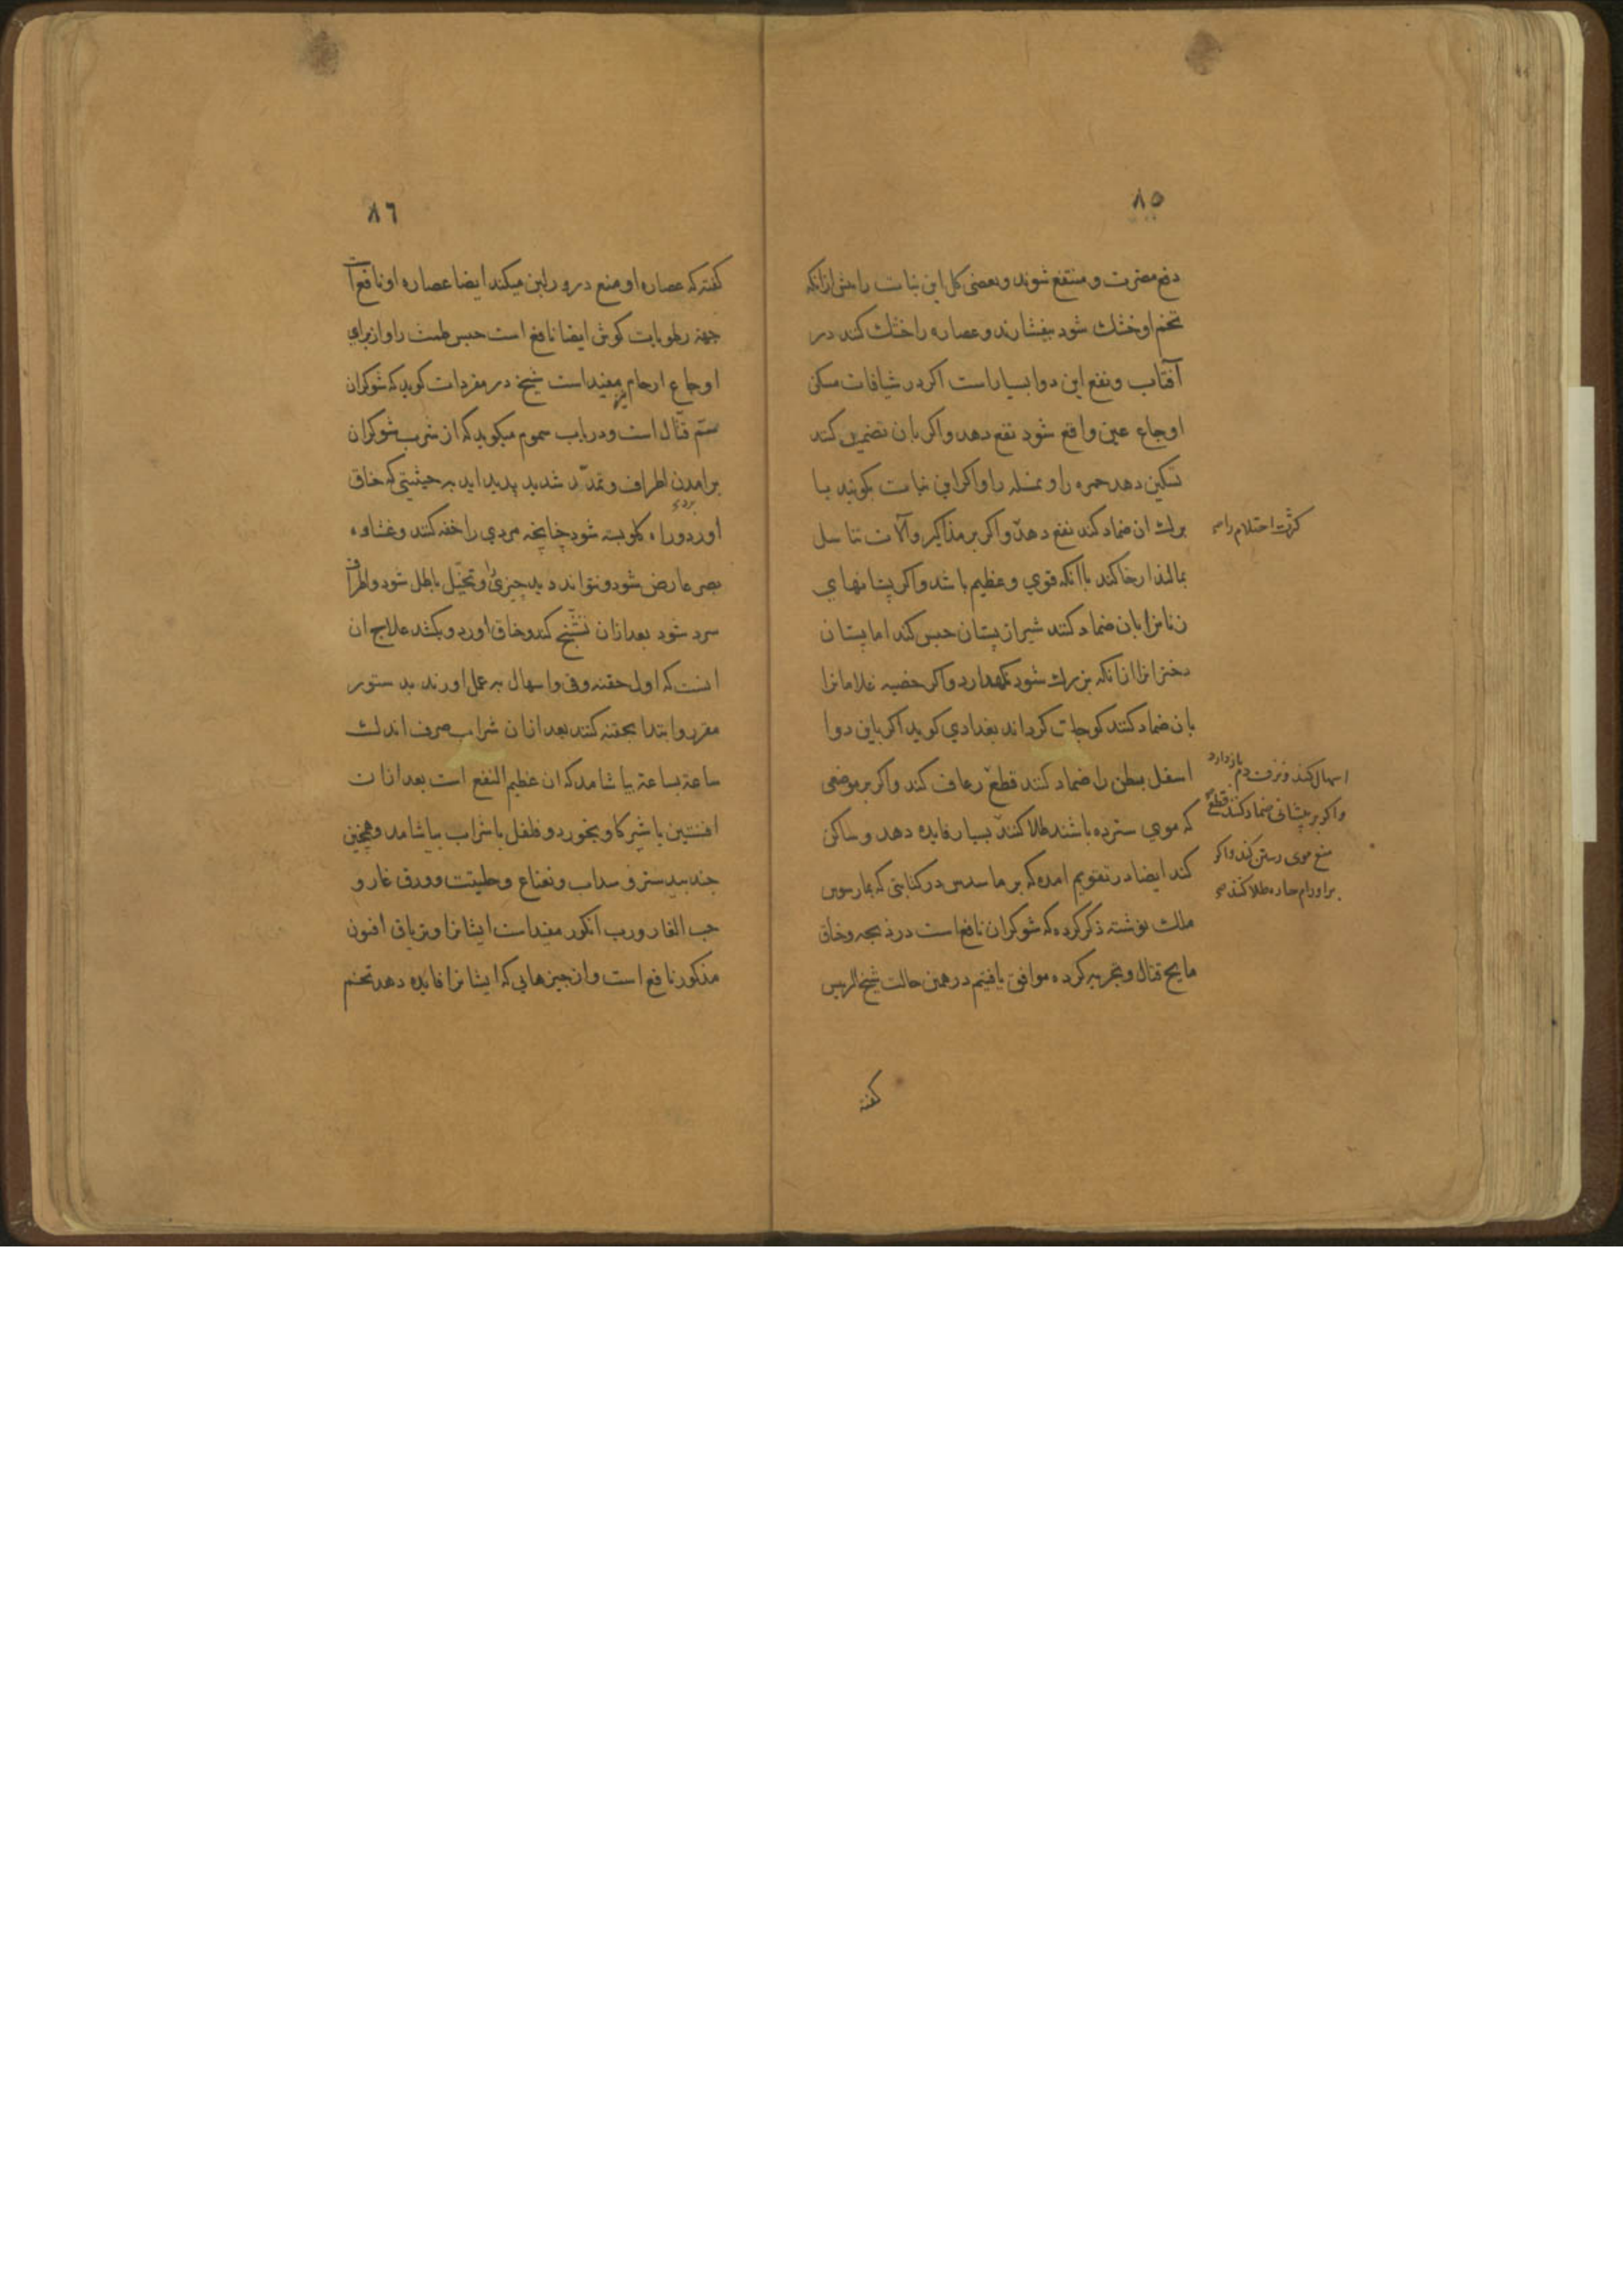 ٨٥
دفع مضرت و منتفع شوند و بعضی کل این نبات را پیش ازانکه
تخم او خشك شود بیفشارند و عصاره را خشك کنند در
آفتاب و نفع این دوا بسیار است اکر در شیافات مسکن
اوجاع عین واقع شود نفع دهد و اکر بان تضمید کنند
تسکین دهد حمره را و نمله را و اکر این نبات بکوبند با
برك ان ضماد کنند نفع دهد و اکر بر مذاکیر و آلات تناسل
کثرت احتلام را
بمالند ارخا کند باانکه قوی و عظیم باشد و اکر پستانهای
زنانرا بان ضماد کنند شیر از پستان حبس کند اما پستان
دخترانرا ازانکه بزرك شود نکهدارد و اکر خصیه غلامانرا
بان ضماد کنند کوچك کرداند بغدادی کوید اکر باین دوا
اسفل بطن را ضماد کنند قطع رعاف کند و اکر بر موضعی
اسهال کند و نزف دم بازدارد
و اکر بر پیشانی ضماد کنند قطع
که موی سترده باشند طلا کنند بسیار فایده دهد و ساکن
منع موی رستن کند و اکر
بر اورام حاره طلا کنند
کند ایضا در تقویم امده که برماسدس در کتابتی که بمارسوس
ملك نوشته ذکر کرده که شوکران نافع است در ذبحه و خناق
مایح قتال و تجربه کرده موافق یافتیم در همین حالت شیخ الرییس
کفته
٨٦
کفته که عصاره او منع درور لبن میکند ایضا عصاره او نافع است
جهة رطوبات کوش ایضا نافع است حبس طمث را و از برای
اوجاع ارحام نیز مفید است شیخ در مفردات کوید که شوکران
سم قتال است و در باب سموم میکوید که از شرب شوکران
برامدن اطراف و تمدد شدید پدید اید بر حیثیتی که خناق
برد
اورد و راه کلو بسته شود چنانچه مردی را خفه کنند و غشاوه
بصر عارض شود و نتواند دید چیزی را و تخیل باطل شود و اطراف
سرد شود بعد ازان تشنج کند و خناق اورد و بکشد علاج ان
انست که اول حقنه و قی و اسهال بر عمل اورند بدستور
مقرر و ابتدا بحقنه کنند بعد ازان شراب صرف اندك
ساعة بساعة بیاشامد که ان عظیم النفع است بعد ازان
افسنتین با شیر کاو بخورد و فلفل با شراب بیاشامد و همچنین
جندبیدستر و سداب و نعناع و حلتیت و ورق غار و
حب الغار و رب انکور مفید است ایشانرا و تریاق افیون
مذکور نافع است و از چیزهایی که ایشانرا فایده دهد تخم